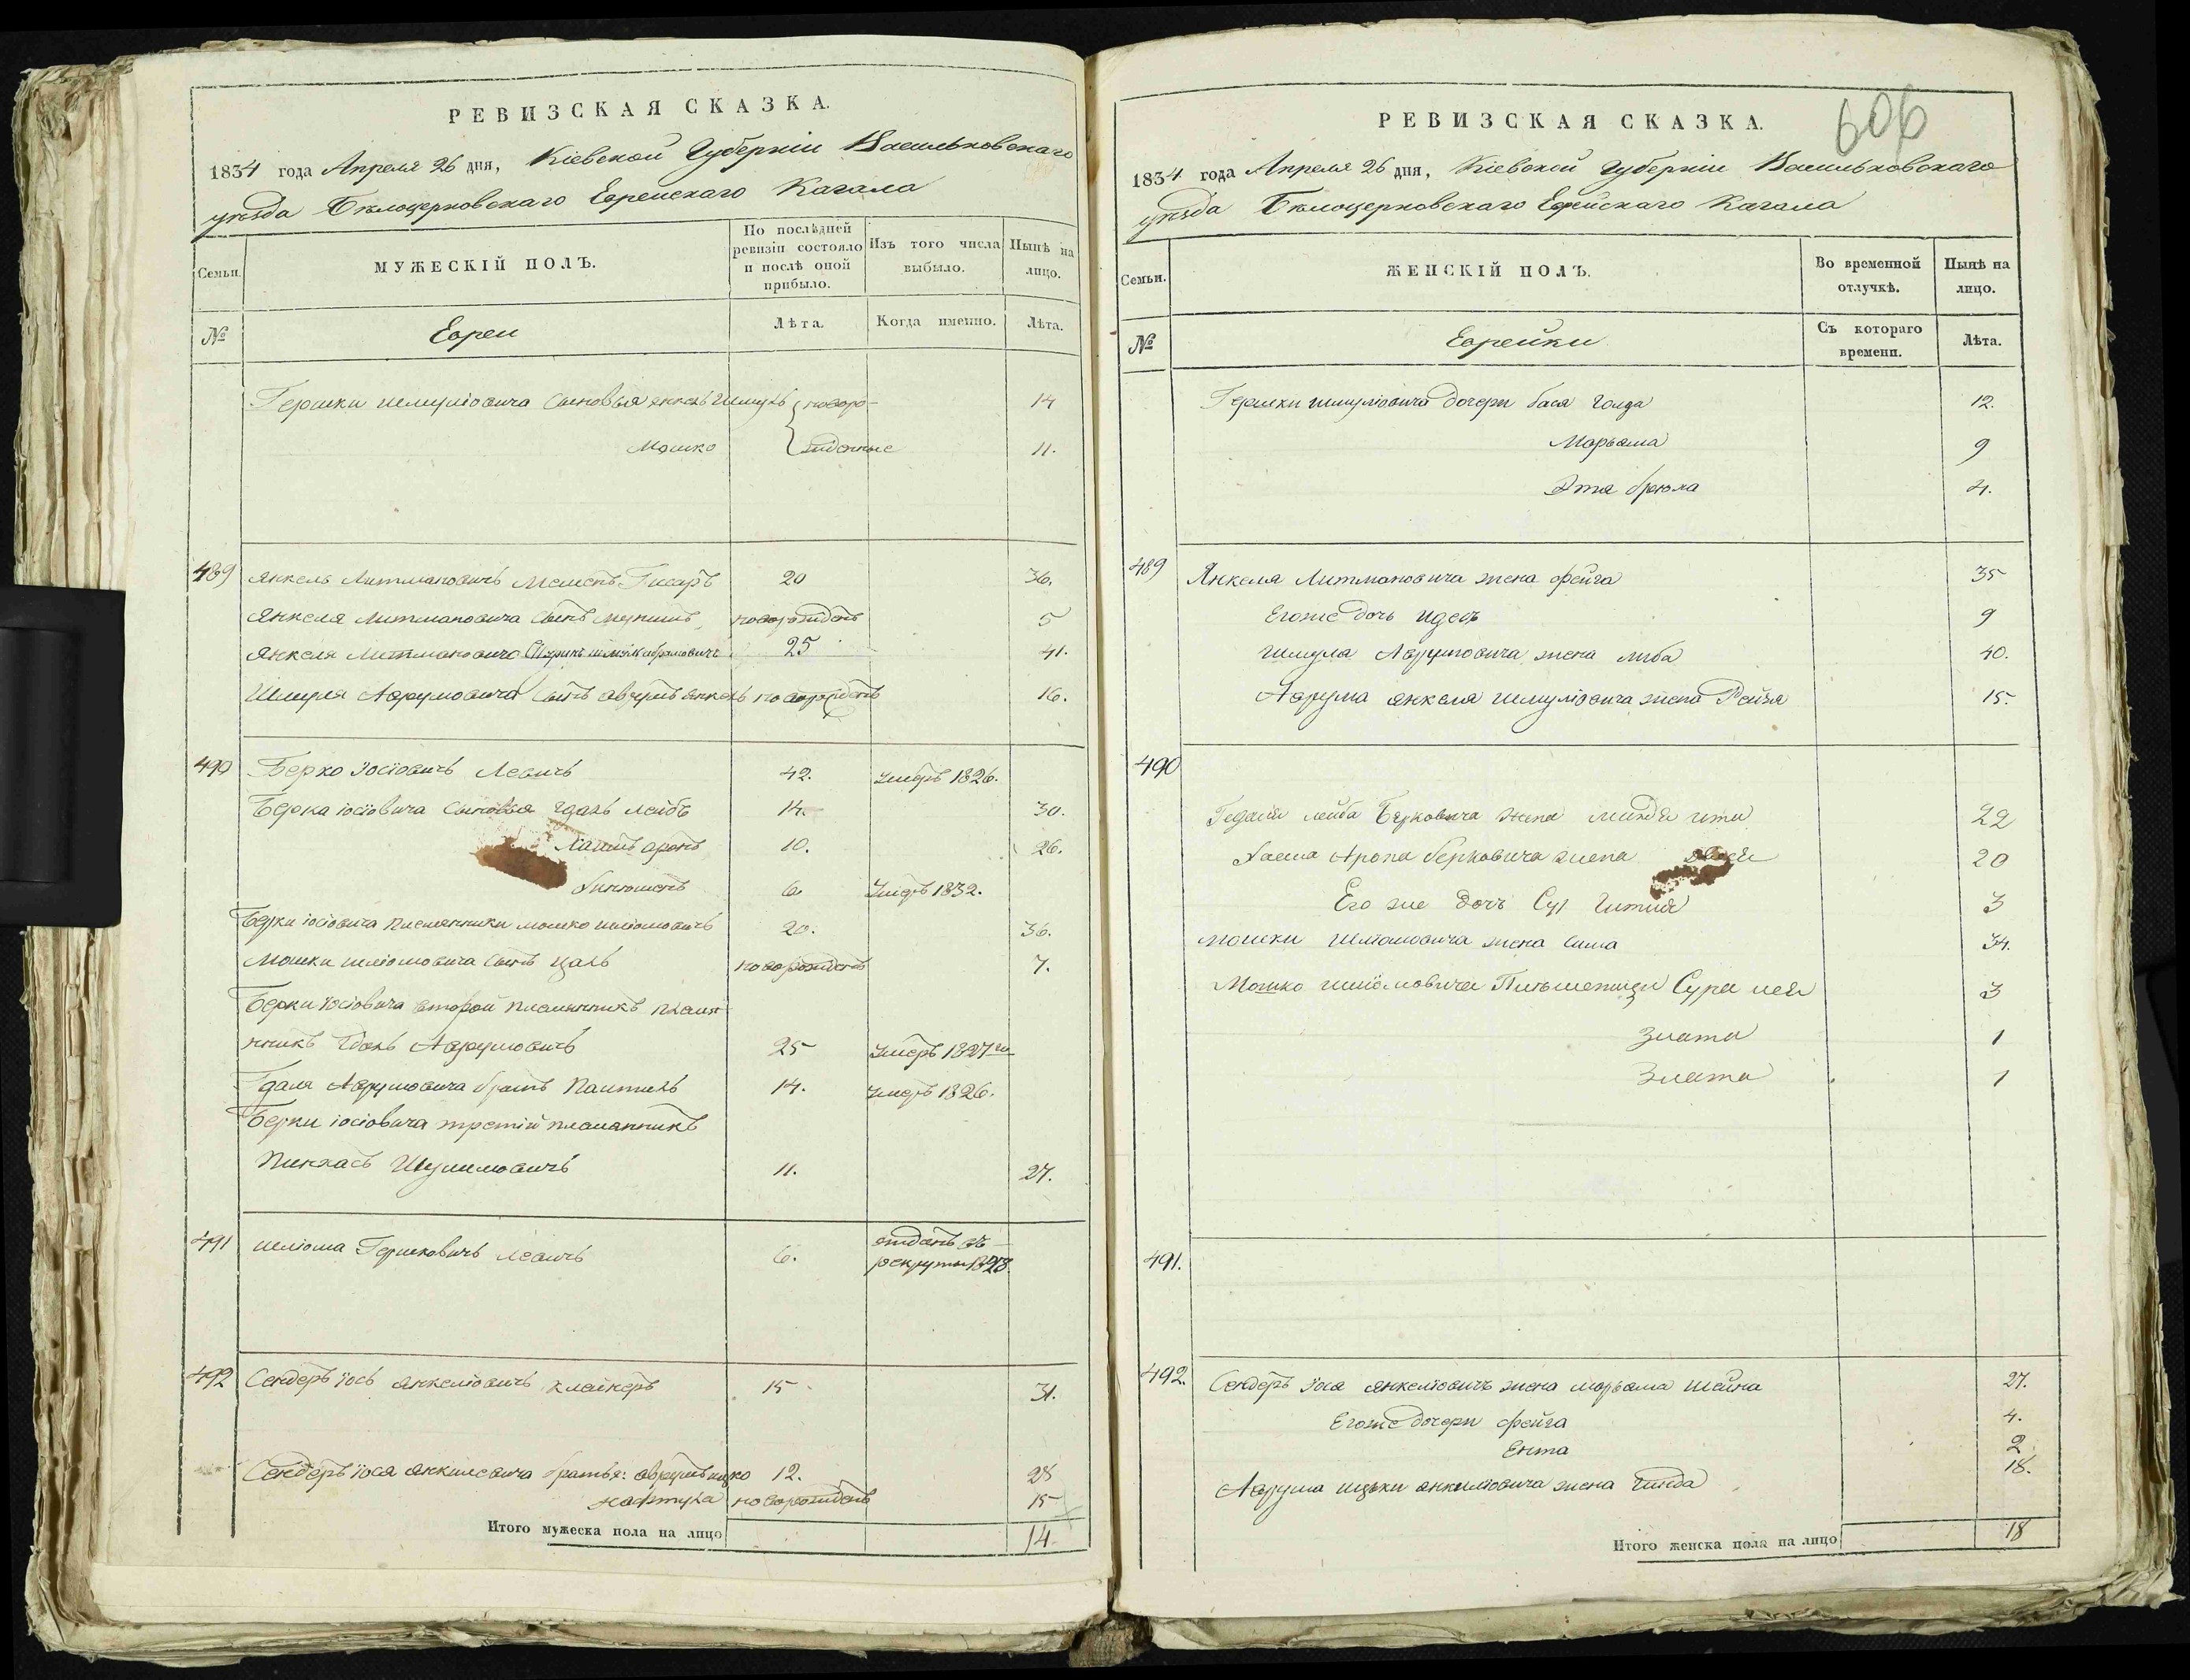 РЕВИЗСКАЯ СКАЗКА.
1834 года Апреля 26 дня, Кіевской Губерніи Васильковскаго
уѣзда Бѣлоцерковскаго Еврейскаго Кагала
Семьи.
МУЖЕСКІЙ ПОЛЪ.
По послѣдней ревизіи состояло и послѣ оной прибыло.
Изъ того числа выбыло.
Нынѣ на лицо.
№
Евреи
Лѣта.
Когда именно.
Лѣта.
Гершки Шмуліовича сыновья Янкель Шмуль новоро- 14
Мошко жденные 11.
489 Янкель Литмановичъ Писаръ 20 36.
Янкеля Литмановича сынъ новорожденъ 5
Янкеля Литмановича 25 41.
Шмуля Аврумовича сынъ Аврумъ Янкель новорожденъ 16.
490 Берко Іосіовичъ Левичъ 42. умеръ 1826.
Берка Іосіовича сыновья Гдаль Лейбъ 14. 30.
Хаимъ Аронъ 10. 26.
6 умеръ 1832.
Берки Іосіовича племянники Мошко Шліомовичъ 20. 36.
Мошки Шліомовича сынъ Цаль новорожденъ 7.
Берки Іосіовича второй племянникъ племя-
нникъ Гдаль Аврумовичъ 25 умеръ 1827го
Гдаля Аврумовича братъ 14. умеръ 1826.
Берки Іосіовича третій племянникъ
Пинхасъ Шулимовичъ 11. 27.
491 Шліома Гершковичъ Левичъ 6. отданъ въ
рекруты 1828.
492 Сендеръ Іось Янкеліовичъ Клейнеръ 15 31.
Сендеръ Іося Янкелевича братья: Аврумъ Ицко 12. 28
новорожденъ 15
Итого мужеска пола на лицо 14.
606
РЕВИЗСКАЯ СКАЗКА.
1834 года Апреля 26 дня, Кіевской Губерніи Васильковскаго
уѣзда Бѣлоцерковскаго Еврейскаго Кагала
Семьи.
ЖЕНСКІЙ ПОЛЪ.
Во временной отлучкѣ.
Нынѣ на лицо.
№
Еврейки
Съ котораго времени.
Лѣта.
Гершки Шмуліовича дочери Бася Голда 12.
Марьяма 9
4.
489 Янкеля Литмановича жена Фейга 35
Егоже дочь Идесъ 9
Шмуля Аврумовича жена Либа 40.
Аврума Янкеля Шмуліовича жена Рейзя 15.
490
Гедалія Лейба Берковича жена Миндя Ита 22
Хаима Арона Берковича жена Двося 20
Его же дочь Гитля 3
Мошки Шліомовича жена Сима 34.
Мошко Шліомовича Сура Лея 3
Злата 1
Злата 1
491.
492. Сендеръ Іося Янкеліовичъ жена Марьяма Шейна 27.
Егоже дочери Фейга 4.
Ента 2
Аврума Ицьки Янкеліовича жена Гинда 18.
Итого женска пола на лицо 18